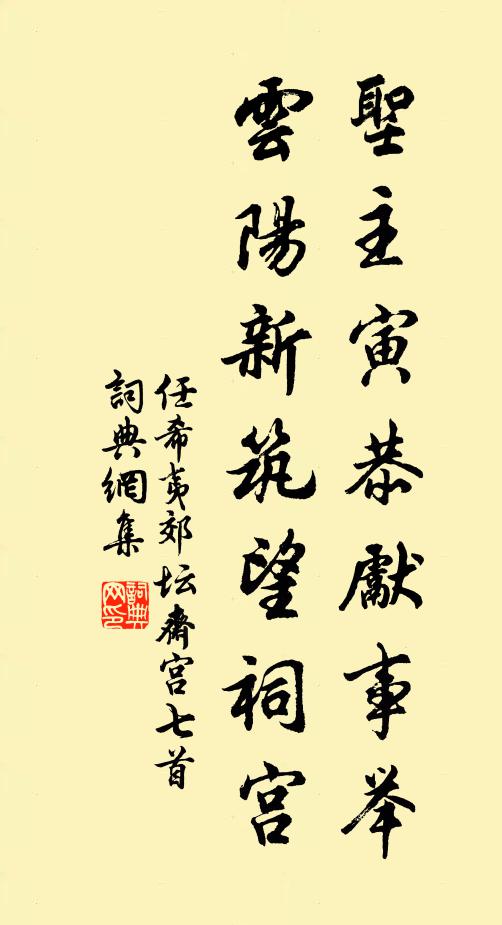 聖主寅恭獻事举
雲陽新筑望祠宫
任希夷郊坛齋宫七首
詞典網集
詞典网印